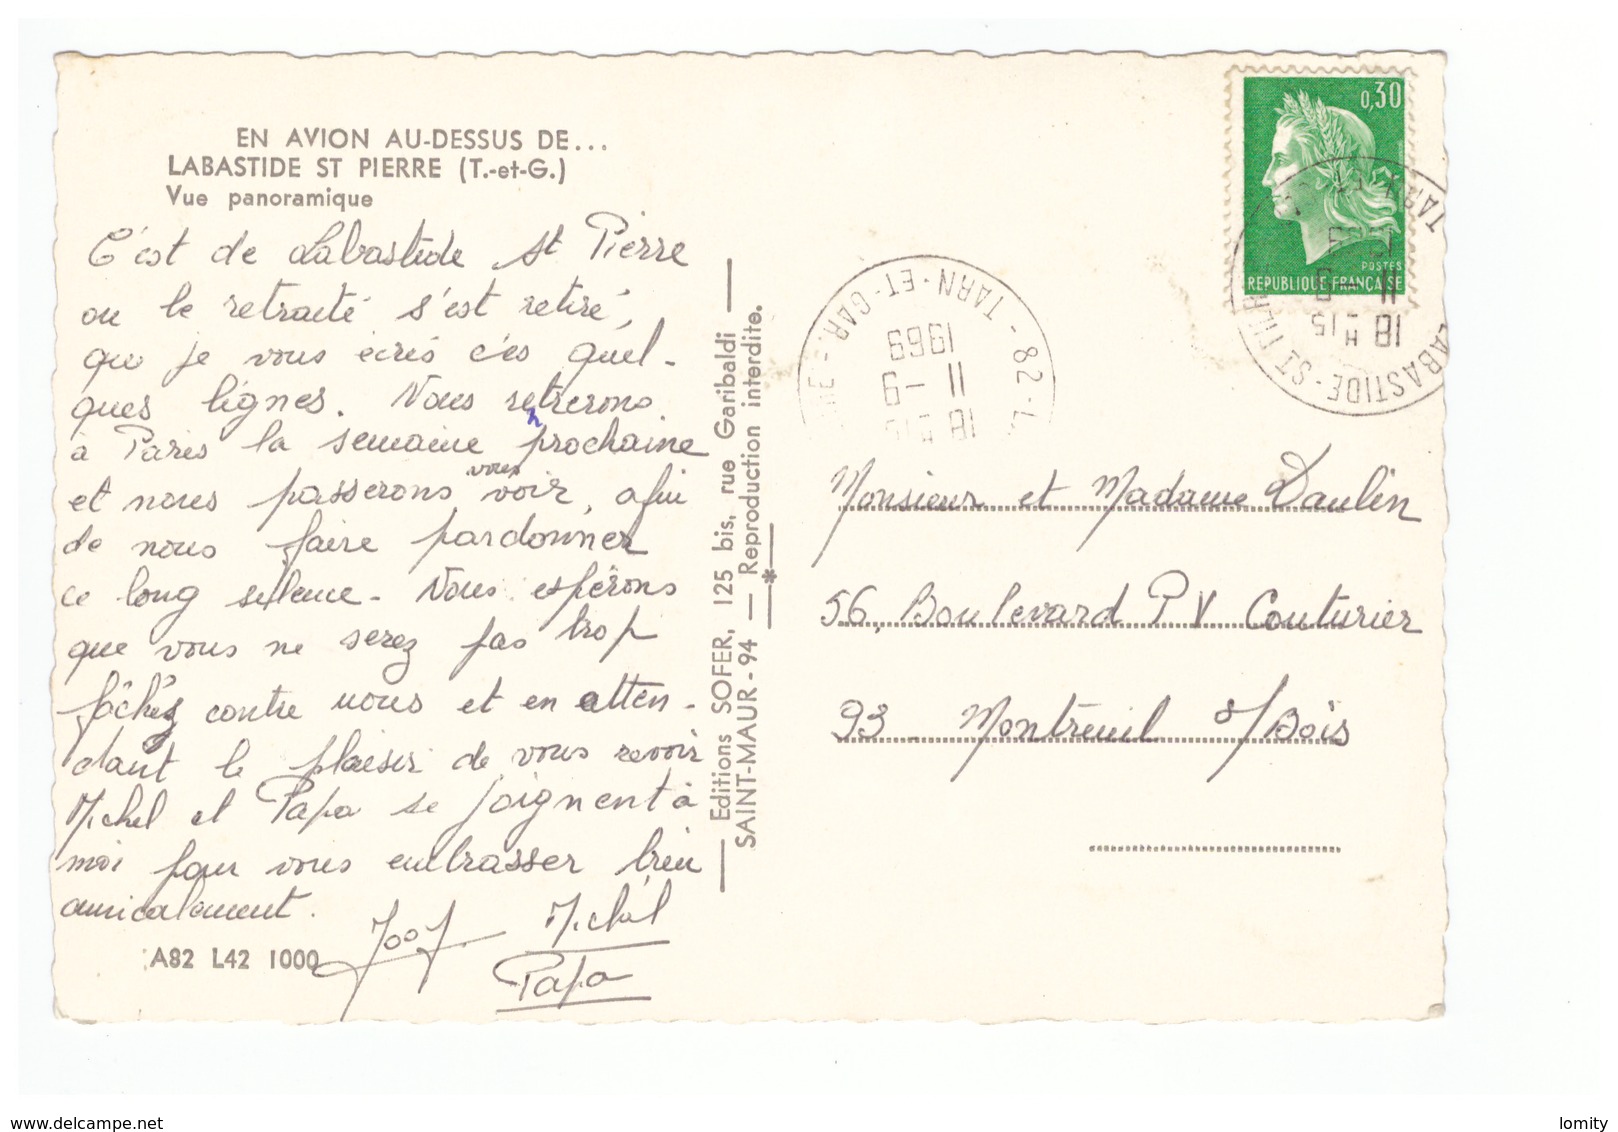 EN AVION AU-DESSUS DE...
LABASTIDE ST PIERRE (T.-et-G.)
Vue panoramique
C'est de Labastide St Pierre
ou le retraité s'est retiré,
que je vous écris c'es quel-
ques lignes. Nous retrerons
à Paris la semaine prochaine
et nous passerons vous voir, afin
de nous faire pardonner
ce long silence - Nous espérons
que vous ne serez pas trop
fâchés contre nous et en atten-
dant le plaisir de vous revoir
Michel et Papa se joignent à
moi pour vous embrasser bien
amicalement.
Michel
Papa
A82 L42 1000
Editions SOFER, 125 bis, rue Garibaldi
SAINT-MAUR - 94 — Reproduction interdite.
0,30
POSTES
REPUBLIQUE FRANÇAISE
LABASTIDE-ST PIERRE
TARN ET
18 H 15
11 - 9
82 - L
- TARN-ET-GAR. -
18 H 15
11 - 9
1969
Monsieur et Madame Daulin
56, Boulevard P V Couturier
93 - Montreuil s/Bois
lomity